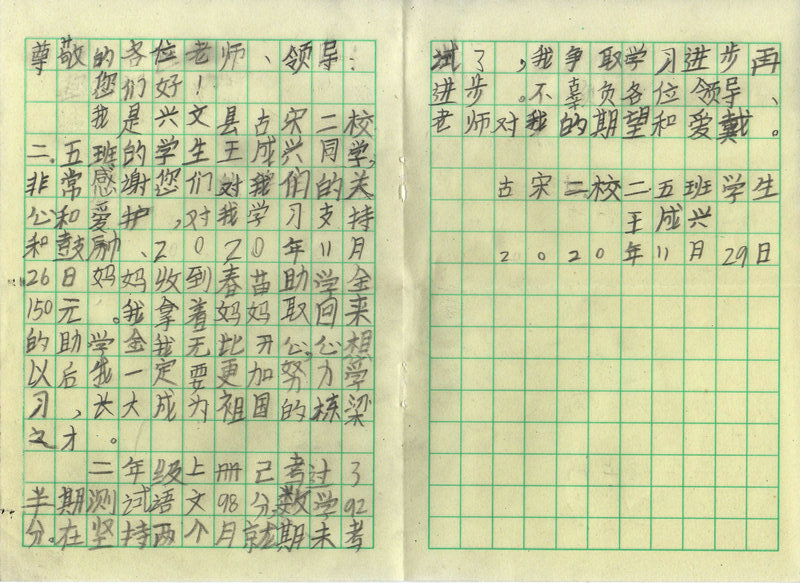 尊敬的各位老师、领导：
您们好！
我是兴文县古宋二校
二.五班的学生王成兴同学,
非常感谢您们对我们的关
心和爱护,对我学习支持
和鼓励、2020年11月
26日妈妈收到春苗助学金
150元。我拿着妈妈取回来
的助学金我无比开心,心想
以后我一定要更加努力学
习,长大成为祖国的栋梁
之才。
二年级上册己考过了
半期测试语文98分数学92
分.在坚持两个月就期未考
试了,我争取学习进步再
进步。不辜负各位领导、
老师对我的期望和爱戴。
古宋二校二.五班学生
王成兴
2020年11月29日